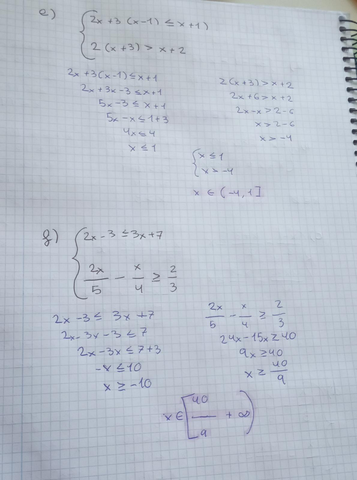 e) { 2x + 3 (x-1) ≤ x+1)
2 (x+3) > x+2
2x+3(x-1) ≤ x+1
2x+3x-3 ≤ x+1
5x-3 ≤ x+1
5x-x ≤ 1+3
4x ≤ 4
x ≤ 1
2(x+3) > x+2
2x+6 > x+2
2x-x > 2-6
x > 2-6
x > -4
{ x ≤ 1
x > -4
x ∈ (-4, 1]
f) { 2x-3 ≤ 3x+7
2x/5 - x/4 ≥ 2/3
2x-3 ≤ 3x+7
2x-3x-3 ≤ 7
2x-3x ≤ 7+3
-x ≤ 10
x ≥ -10
2x/5 - x/4 ≥ 2/3
24x-15x ≥ 40
9x ≥ 40
x ≥ 40/9
x ∈ [40/9 + ∞)